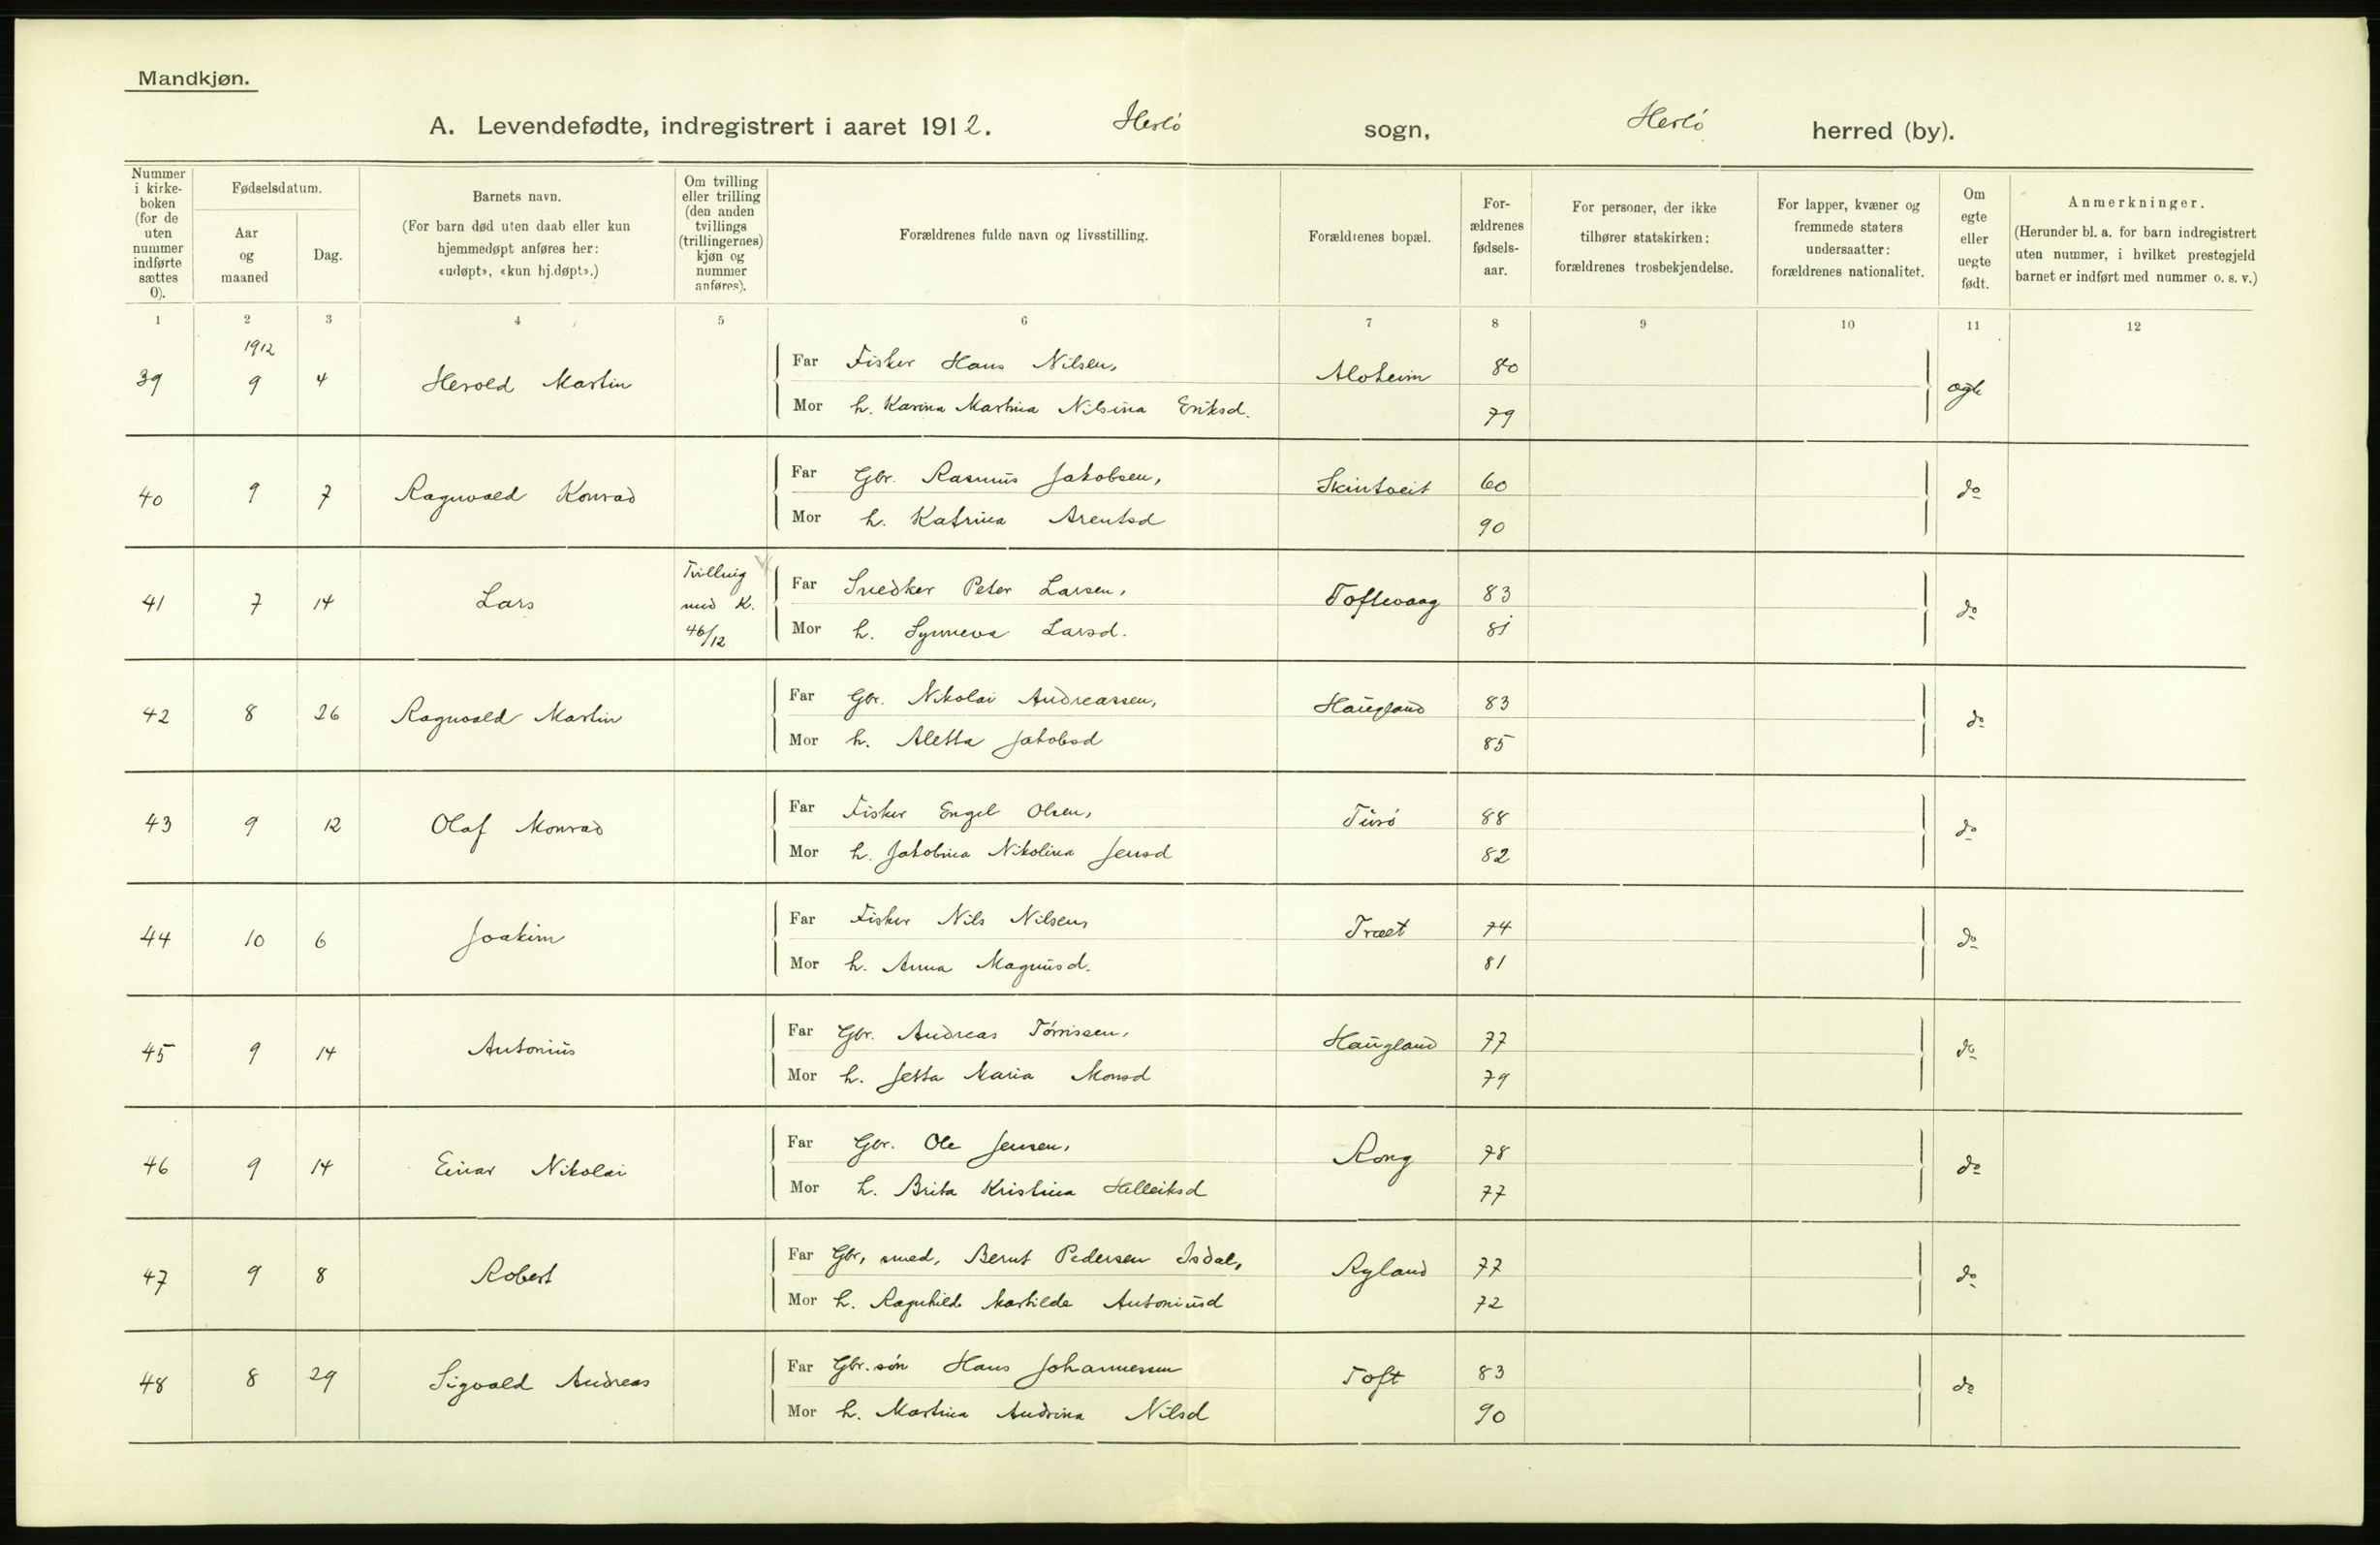 Mandkjøn.
A. Levendefødte, indregistrert i aaret 1912. Herlö sogn, Herlö herred (by).
Nummer i kirke-boken (for de uten nummer indførte sættes 0).
Fødselsdatum.
Aar og maaned
Dag.
Barnets navn.
(For barn død uten daab eller kun hjemmedøpt anføres her: «udøpt», «kun hj.døpt».)
Om tvilling eller trilling (den anden tvillings (trillingernes) kjøn og nummer anføres).
Forældrenes fulde navn og livsstilling.
Forældrenes bopæl.
For-ældrenes fødsels-aar.
For personer, der ikke tilhører statskirken: forældrenes trosbekjendelse.
For lapper, kvæner og fremmede staters undersaatter: forældrenes nationalitet.
Om egte eller uegte født.
Anmerkninger.
(Herunder bl. a. for barn indregistrert uten nummer, i hvilket prestegjeld barnet er indført med nummer o. s. v.)
1 2 3 4 5 6 7 8 9 10 11 12
1912
39 9 4 Herold Martin Far Fisker Hans Nilsen, Aloheim 80 ægte
Mor h. Karina Martina Nilsina Eriksd. 79
40 9 7 Ragnvald Konrad Far Gbr. Rasmus Jakobsen, Skintveit 60 do
Mor h. Katrina Arentsd 90
41 7 14 Lars Tvilling med K. 46/12 Far Snedker Peter Larsen, Toftevaag 83 do
Mor h. Synneva Larsd. 81
42 8 26 Ragnvald Martin Far Gbr. Nikolai Andreassen, Haugland 83 do
Mor h. Aletta Jakobsd 85
43 9 12 Olaf Monrad Far Fisker Engel Olsen, Turö 88 do
Mor h. Jakobina Nikolina Jensd 82
44 10 6 Joakim Far Fisker Nils Nilsen, Træet 74 do
Mor h. Anna Magnusd. 81
45 9 14 Antonius Far Gbr. Andreas Törrissen, Haugland 77 do
Mor h. Jetta Maria Monsd 79
46 9 14 Einar Nikolai Far Gbr. Ole Jensen, Rong 78 do
Mor h. Brita Kristina Helleiksd 77
47 9 8 Robert Far Gbr, smed, Bernt Pedersen Isdal, Ryland 77 do
Mor h. Ragnhild Martilde Antoniusd 72
48 8 29 Sigvald Andreas Far Gbr. sön Hans Johannessen Toft 83 do
Mor h. Martina Andrina Nilsd 90